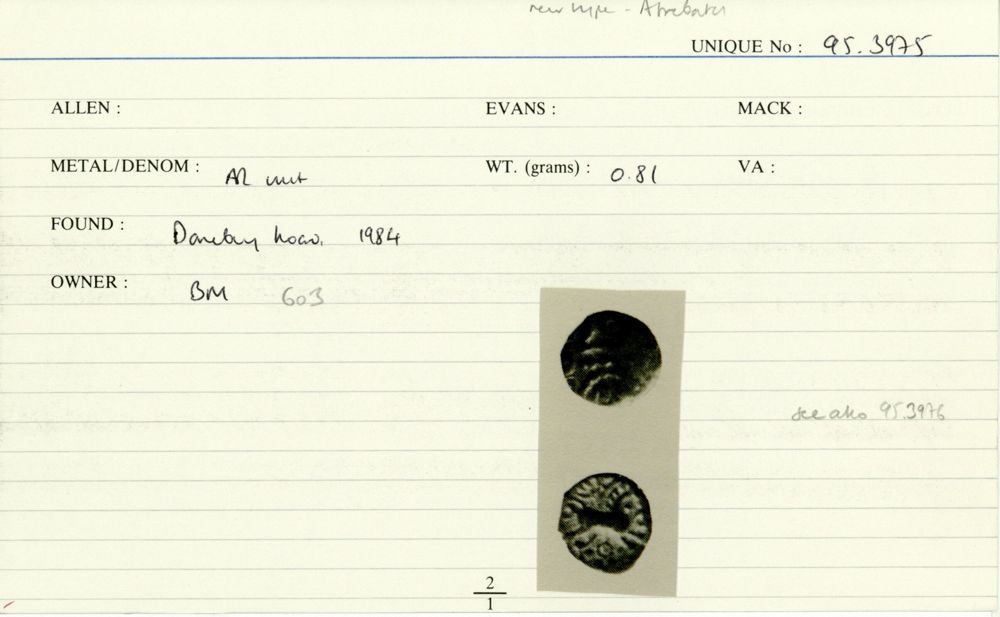 new type - Atrebates
UNIQUE No : 95.3975
ALLEN : EVANS : MACK :
METAL/DENOM : AR unit WT. (grams) : 0.81 VA :
FOUND : Danebury hoard, 1984
OWNER : BM 603
see also 95.3976
2
1